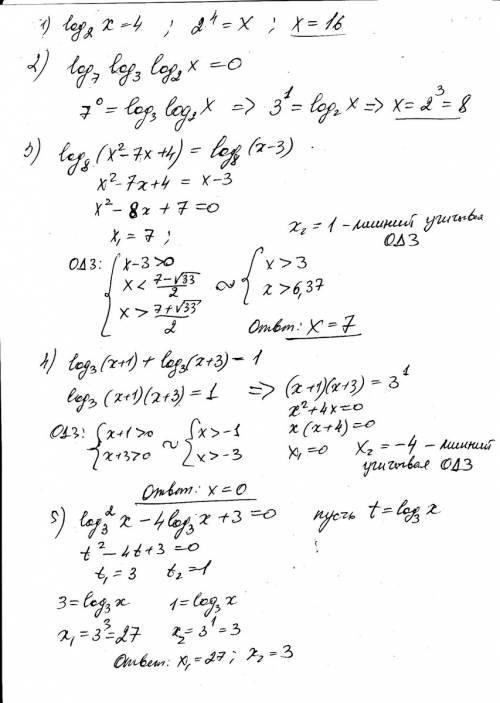 1) log₂ x = 4 ; 2⁴ = x ; x = 16
2) log₇ log₃ log₂ x = 0
7⁰ = log₃ log₂ x => 3¹ = log₂ x => x = 2³ = 8
3) log₈ (x² - 7x + 4) = log₈ (x - 3)
x² - 7x + 4 = x - 3
x² - 8x + 7 = 0
x₁ = 7 ; x₂ = 1 - лишний учитывая ОДЗ
ОДЗ: { x - 3 > 0 ; x < (7 - √33)/2 ; x > (7 + √33)/2 ~ { x > 3 ; x > 6,37
Ответ: x = 7
4) log₃ (x+1) + log₃ (x+3) = 1
log₃ (x+1)(x+3) = 1 => (x+1)(x+3) = 3¹
x² + 4x = 0
x (x+4) = 0
ОДЗ: { x+1 > 0 ; x+3 > 0 ~ { x > -1 ; x > -3
x₁ = 0 x₂ = -4 - лишний учитывая ОДЗ
Ответ: x = 0
5) log₃² x - 4 log₃ x + 3 = 0 пусть t = log₃ x
t² - 4t + 3 = 0
t₁ = 3 t₂ = 1
3 = log₃ x 1 = log₃ x
x₁ = 3³ = 27 x₂ = 3¹ = 3
Ответ: x₁ = 27 ; x₂ = 3